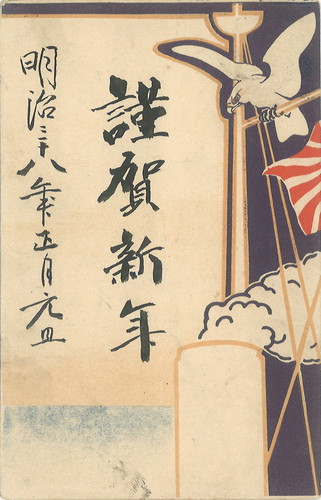 謹賀新年
明治三十八年正月元旦